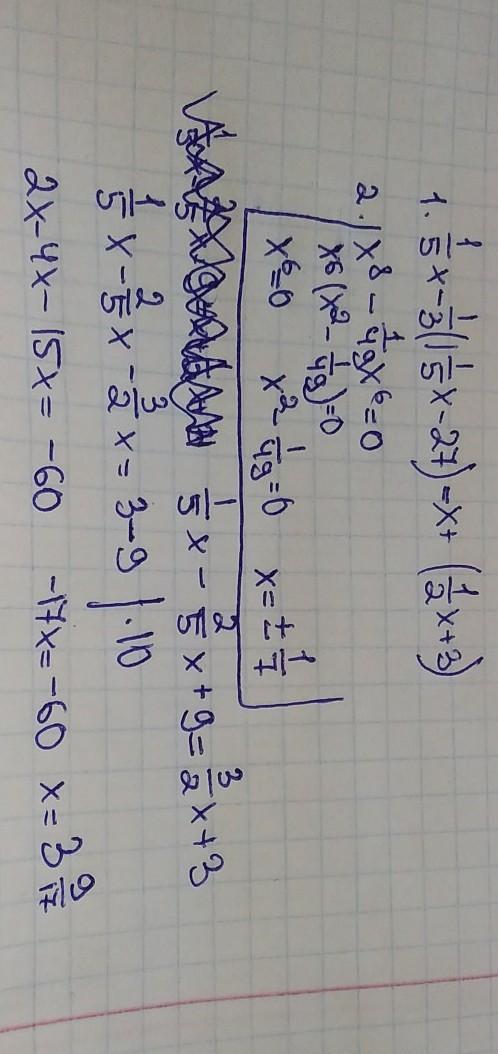 1. 1/5 x - 1/3(1 1/5 x - 27) = x + (1/2 x + 3)
2. x⁸ - 1/49 x⁶ = 0
x⁶(x² - 1/49) = 0
x⁶ = 0 x² - 1/49 = 0 x = ± 1/7
1/5 x - 2/5 x + 9 = 3/2 x + 3
1/5 x - 2/5 x - 3/2 x = 3 - 9 | · 10
2x - 4x - 15x = -60 -17x = -60 x = 3 9/17